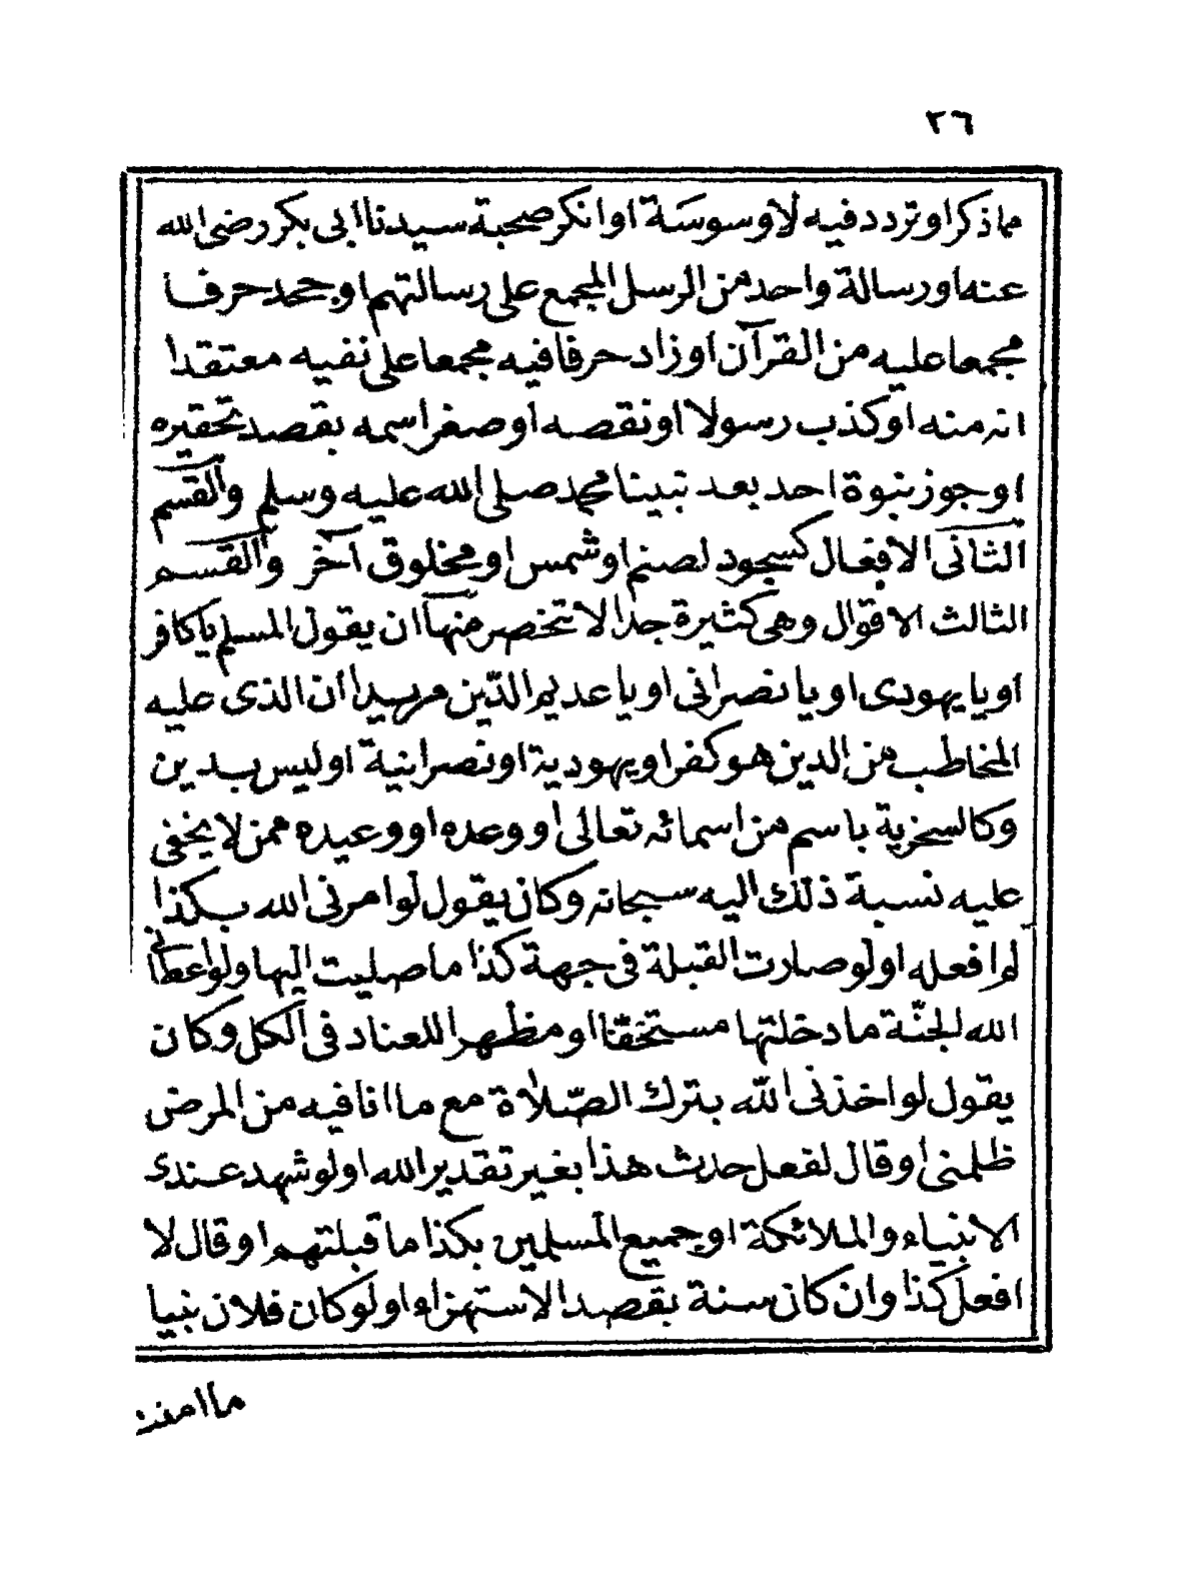 ٢٦
مما ذكر او تردد فيه لا وسوسة او انكر صحبة سيدنا ابى بكر رضى الله
عنه او رسالة واحد من الرسل المجمع على رسالتهم او جحد حرفا
مجمعا عليه من القرآن او زاد حرفا فيه مجمعا على نفيه معتقدا
انه منه او كذب رسولا او نقصه او صغر اسمه بقصد تحقيره
او جوز نبوة احد بعد نبينا محمد صلى الله عليه وسلم والقسم
الثانى الافعال كسجود لصنم او شمس او مخلوق آخر والقسم
الثالث الاقوال وهى كثيرة جدا لا تنحصر منها ان يقول لمسلم يا كافر
او يا يهودى او يا نصرانى او يا عديم الدّين مريدا أن الذى عليه
المخاطب من الدين هو كفر او يهودية او نصرانية او ليس بدين
وكالسخرية باسم من اسمائه تعالى او وعده او وعيده ممن لا يخفى
عليه نسبة ذلك اليه سبحانه وكان يقول لو امرنى الله بكذا
لم افعله او لو صارت القبلة فى جهة كذا ما صليت اليها ولو اعطانى
الله الجنّة ما دخلتها مستخفّا او مظهرا للعناد فى الكل وكان
يقول لو اخذنى الله بترك الصّلاة مع ما انا فيه من المرض
ظلمنى او قال لفعل حدث هذا بغير تقدير الله او لو شهد عندى
الانبياء والملائكة او جميع المسلمين بكذا ما قبلتهم او قال لا
افعل كذا وان كان سنة بقصد الاستهزاء او لو كان فلان نبيا
ما امنت